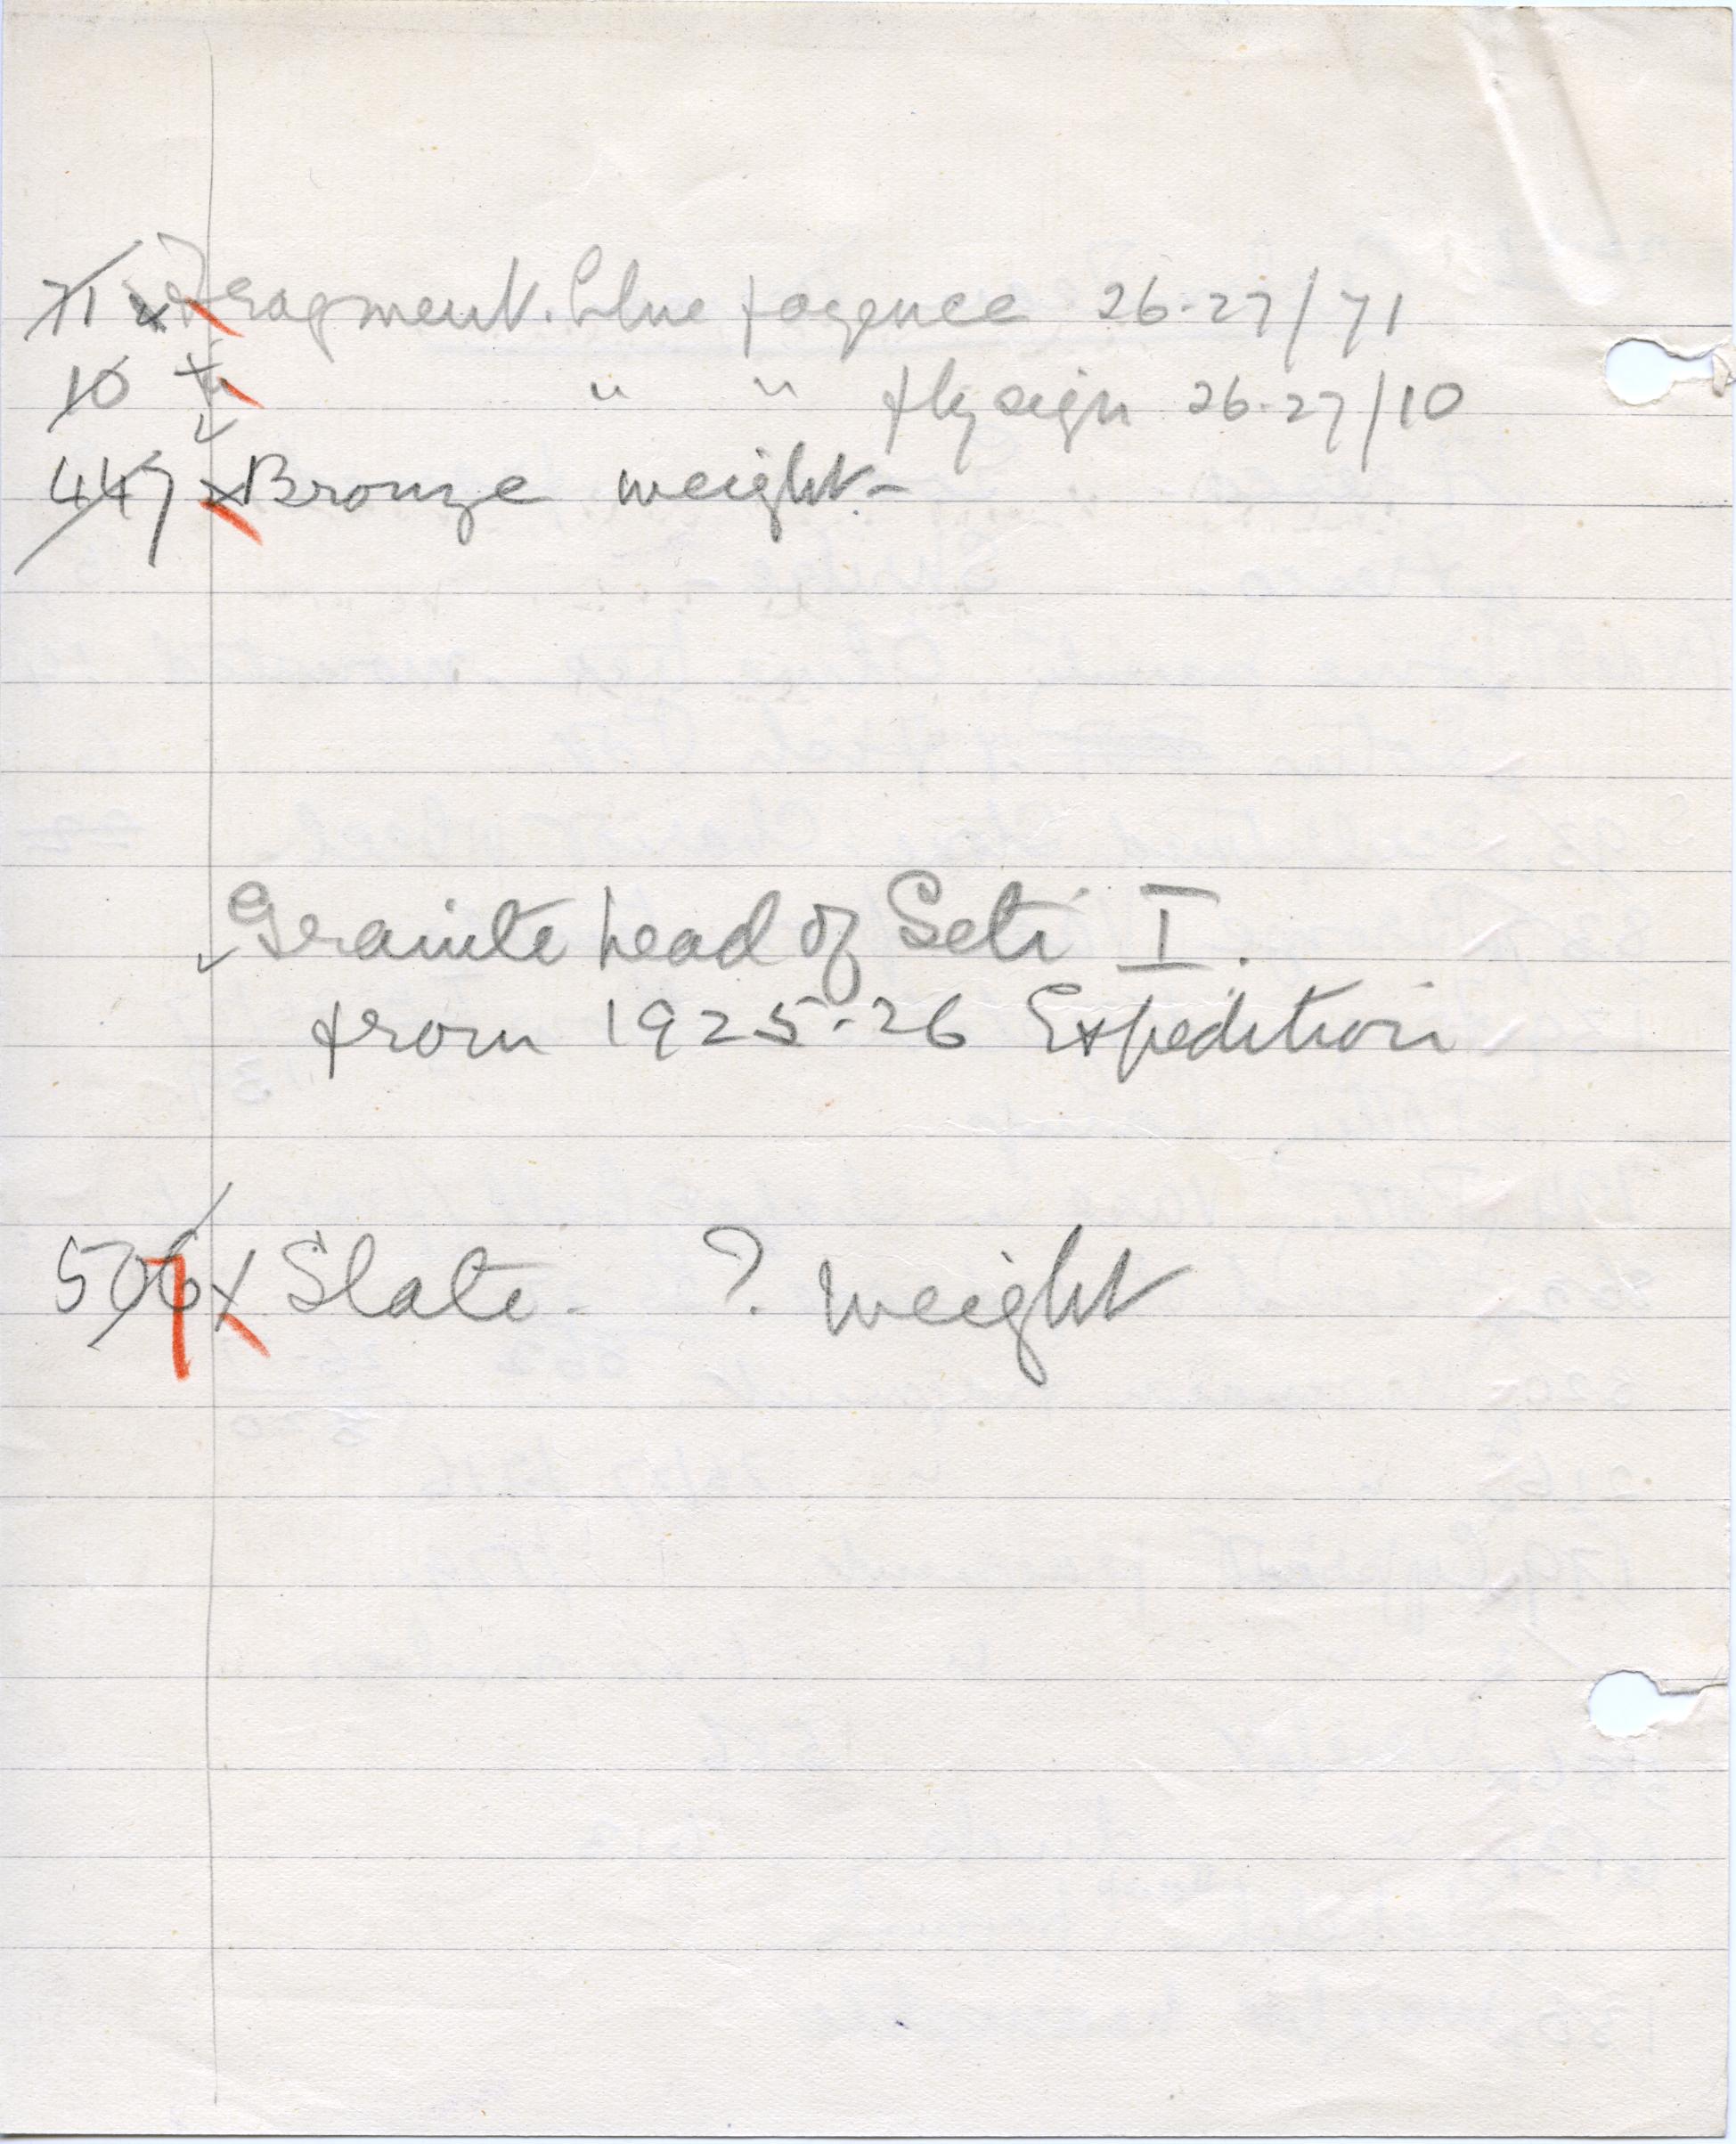 71 x Fragment. blue fayence 26-27/71
10 x " " fly sign 26-27/10
447 x Bronze weight-
✓ Granite head of Seti I.
from 1925-26 Expedition
5067 x Slate - ? weight